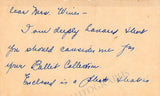 Dear Mrs. Wines -
I am deeply honored that
you should consider me for
your Ballet Collection
Enclosed is a